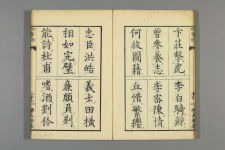 卞莊擊虎 李白騎鯨
曾參養志 李密陳情
何收圖籍 丘惜繁纓
忠臣洪皓 義士田橫
相如完璧 廉頗負荆
能詩杜甫 嗜酒劉伶